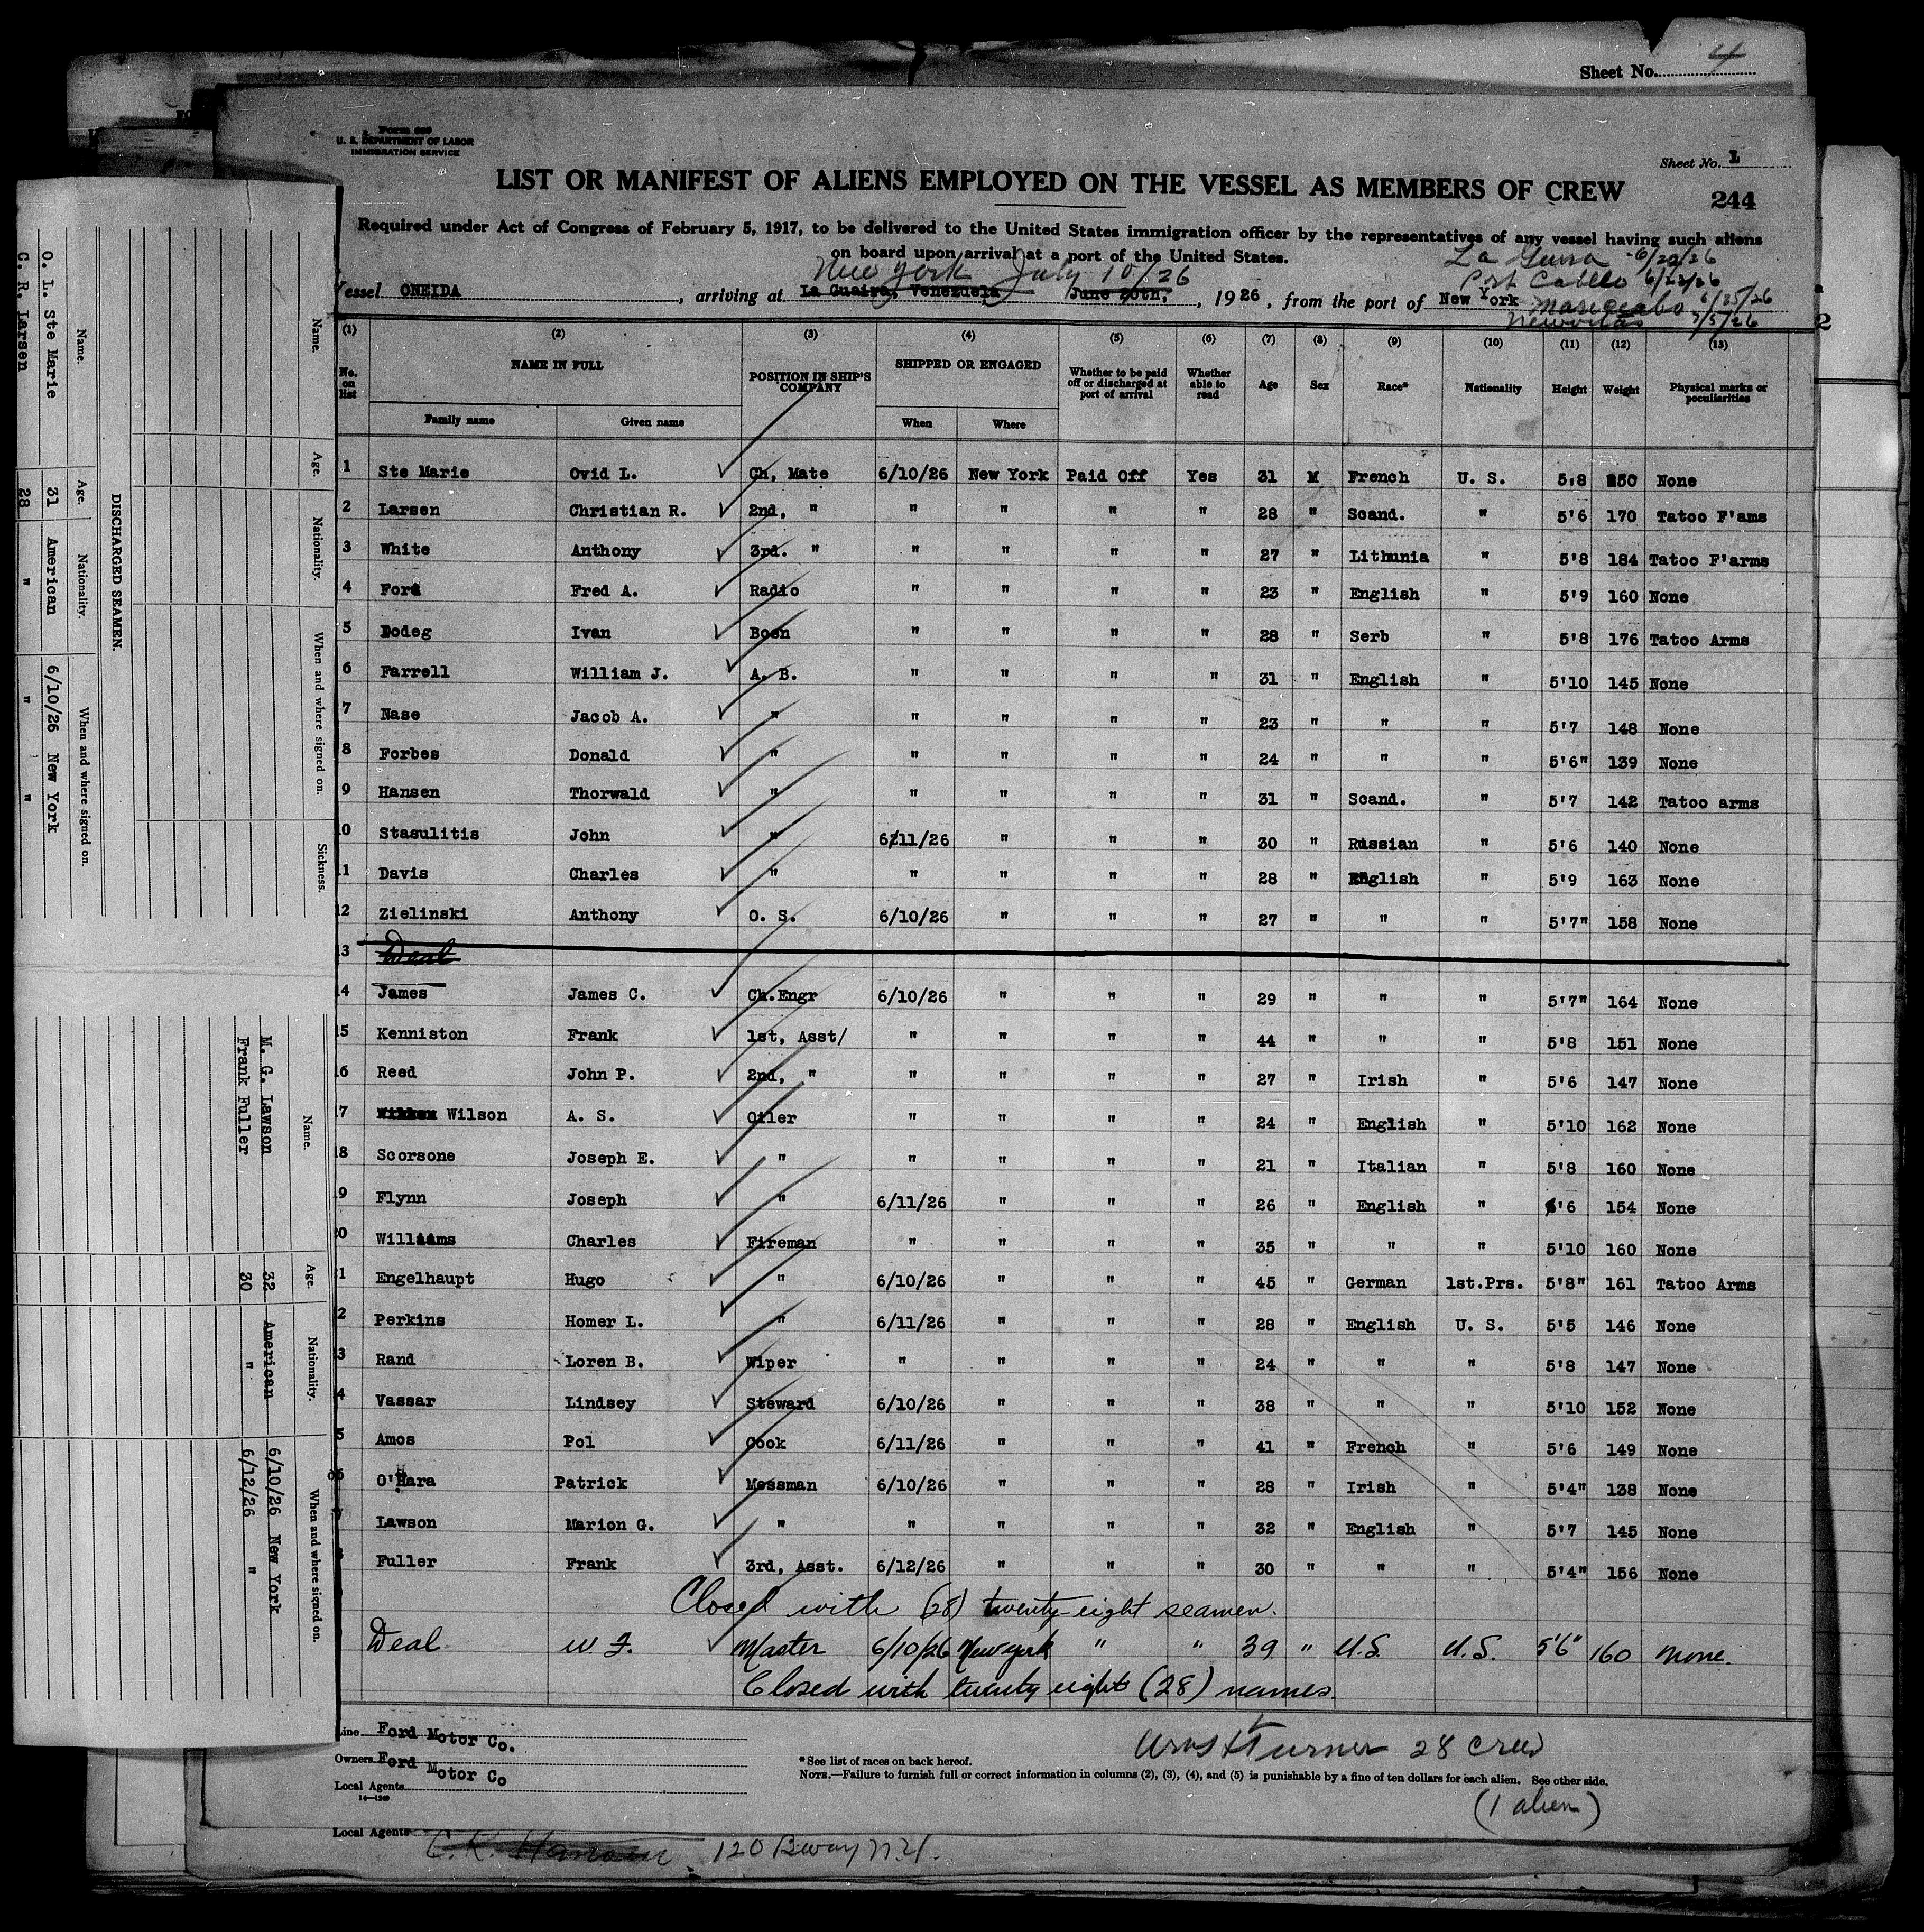 Sheet No. 4
Form 689
U. S. DEPARTMENT OF LABOR
IMMIGRATION SERVICE
Sheet No. 1
LIST OR MANIFEST OF ALIENS EMPLOYED ON THE VESSEL AS MEMBERS OF CREW
244
Required under Act of Congress of February 5, 1917, to be delivered to the United States immigration officer by the representatives of any vessel having such aliens
on board upon arrival at a port of the United States.
La Guira 6/20/26
New York July 10/26
Port Cabello 6/22/26
Vessel ONEIDA, arriving at La Guaira, Venezuela June 20th, 1926, from the port of New York
Maricaibo 6/25/26
Neuvitas 7/5/26
(1) (2) (3) (4) (5) (6) (7) (8) (9) (10) (11) (12) (13)
No. on list NAME IN FULL POSITION IN SHIP'S COMPANY SHIPPED OR ENGAGED Whether to be paid off or discharged at port of arrival Whether able to read Age Sex Race* Nationality Height Weight Physical marks or peculiarities
Family name Given name When Where
1 Ste Marie Ovid L. Ch, Mate 6/10/26 New York Paid Off Yes 31 M French U. S. 5'8 250 None
2 Larsen Christian R. 2nd, " " " " " 28 " Scand. " 5'6 170 Tatoo F'ams
3 White Anthony 3rd. " " " " " 27 " Lithunia " 5'8 184 Tatoo F'arms
4 Ford Fred A. Radio " " " " 23 " English " 5'9 160 None
5 Dodeg Ivan Bosn " " " " 28 " Serb " 5'8 176 Tatoo Arms
6 Farrell William J. A. B. " " " " 31 " English " 5'10 145 None
7 Nase Jacob A. " " " " " 23 " " " 5'7 148 None
8 Forbes Donald " " " " " 24 " " " 5'6" 139 None
9 Hansen Thorwald " " " " " 31 " Scand. " 5'7 142 Tatoo arms
10 Stasulitis John " 6/11/26 " " " 30 " Russian " 5'6 140 None
11 Davis Charles " " " " " 28 " English " 5'9 163 None
12 Zielinski Anthony O. S. 6/10/26 " " " 27 " " " 5'7" 158 None
13 Deal
14 James James C. Ch.Engr 6/10/26 " " " 29 " " " 5'7" 164 None
15 Kenniston Frank 1st, Asst/ " " " " 44 " " " 5'8 151 None
16 Reed John P. 2nd, " " " " " 27 " Irish " 5'6 147 None
17 Wilson A. S. Oiler " " " " 24 " English " 5'10 162 None
18 Scorsone Joseph E. " " " " " 21 " Italian " 5'8 160 None
19 Flynn Joseph " 6/11/26 " " " 26 " English " '6 154 None
20 Williams Charles Fireman " " " " 35 " " " 5'10 160 None
21 Engelhaupt Hugo " 6/10/26 " " " 45 " German 1st.Prs. 5'8" 161 Tatoo Arms
2 Perkins Homer L. " 6/11/26 " " " 28 " English U. S. 5'5 146 None
3 Rand Loren B. Wiper " " " " 24 " " " 5'8 147 None
4 Vassar Lindsey Steward 6/10/26 " " " 38 " " " 5'10 152 None
5 Amos Pol Cook 6/11/26 " " " 41 " French " 5'6 149 None
6 O'Hara Patrick Messman 6/10/26 " " " 28 " Irish " 5'4" 138 None
7 Lawson Marion G. " " " " " 32 " English " 5'7 145 None
8 Fuller Frank 3rd, Asst. 6/12/26 " " " 30 " " " 5'4" 156 None
Closed with (28) twenty-eight seamen.
Deal W. F. Master 6/10/26 New York " " 39 " U.S. U.S. 5'6" 160 None.
Closed with twenty eight (28) names.
Line Ford Motor Co.
Owners Ford Motor Co
Local Agents
14—1240
*See list of races on back hereof.
Turner 28 Crew
NOTE.—Failure to furnish full or correct information in columns (2), (3), (4), and (5) is punishable by a fine of ten dollars for each alien. See other side.
(1 alien)
Local Agents 120 Bway N.Y.
DISCHARGED SEAMEN.
Name. Age. Nationality. When and where signed on. Sickness.
Name. Age. Nationality. When and where signed on.
O. L. Ste Marie 31 American 6/10/26 New York
C. R. Larsen 28 " " "
Name. Age. Nationality. When and where signed on.
M. G. Lawson 32 American 6/10/26 New York
Frank Fuller 30 " 6/12/26 "